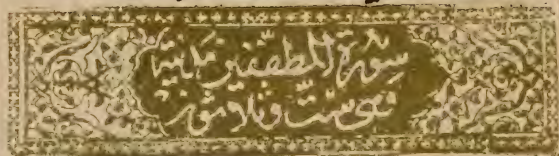 سورة المطففين مدنية
وهى ست وثلاثون